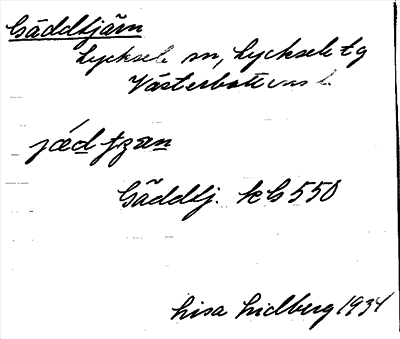 Gäddtjärn
Lycksele sn, Lycksele tg
Västerbottens l.
jæd tʒæn
Gäddtj. kb 550
Lisa Lidberg 1934